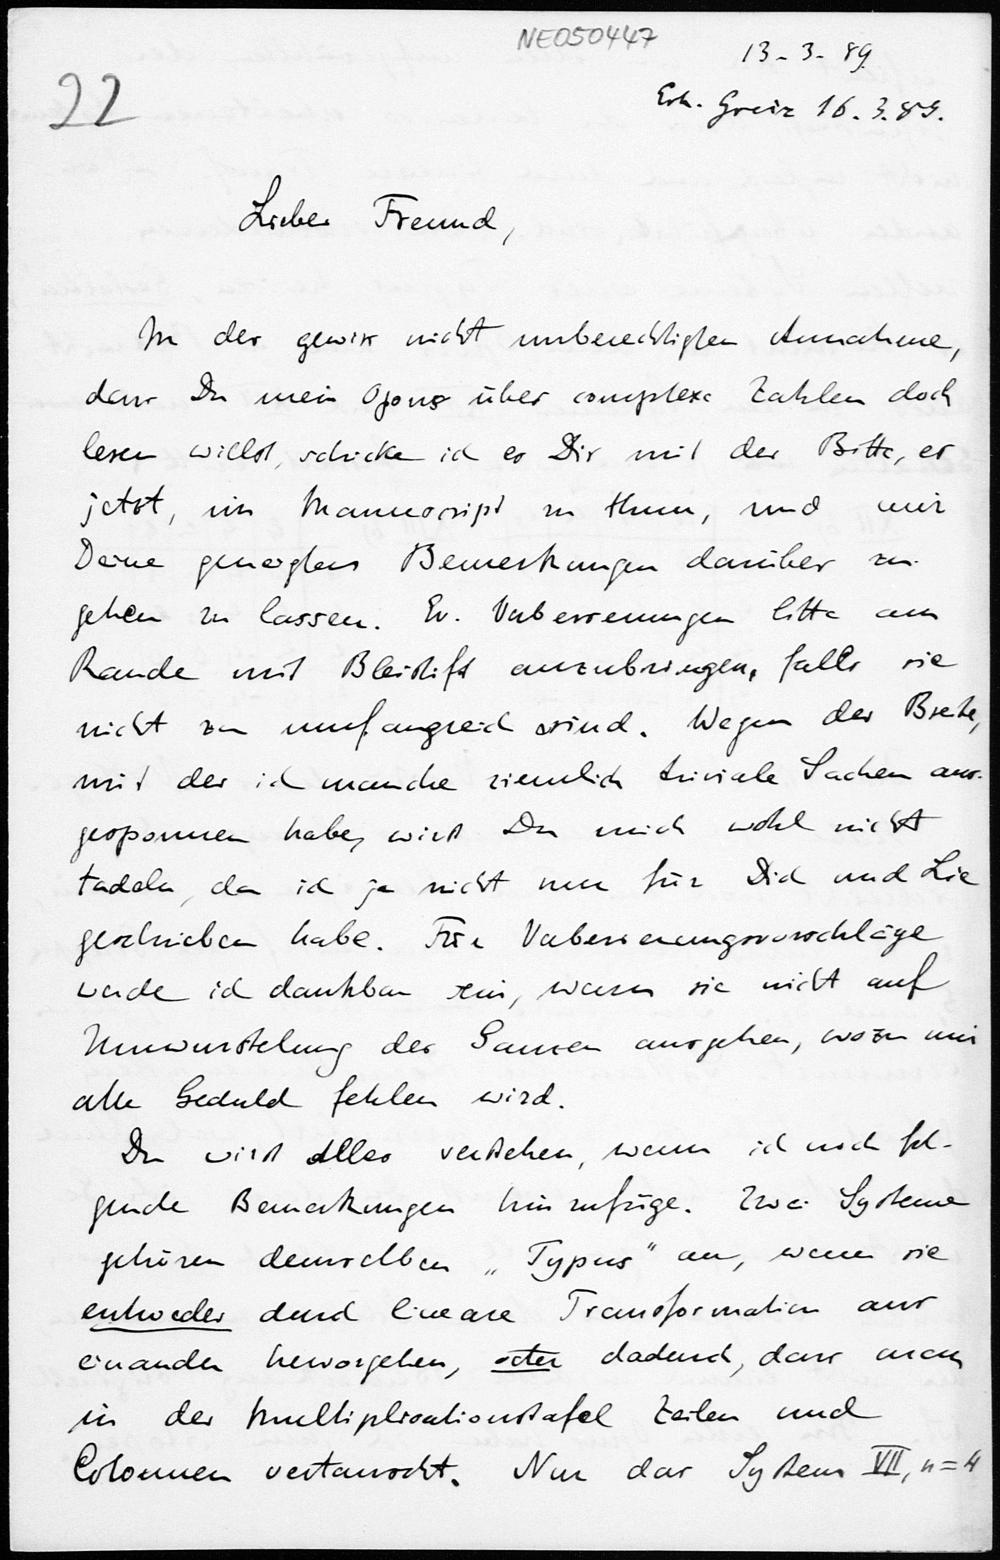 NE050447
13-3-89
22
Erh. Greiz 16.3.89.
Lieber Freund,
In der gewiss nicht unberechtigten Annahme,
dass Du mein Opus über complexe Zahlen doch
lesen willst, schicke ich es Dir mit der Bitte, es
jetzt, im Manuscript zu thun, und mir
Deine geneigten Bemerkungen darüber zu-
gehen zu lassen. Ev. Verbesserungen bitte am
Rande mit Bleistift anzubringen, falls sie
nicht zu umfangreich sind. Wegen der Breite,
mit der ich manche ziemlich triviale Sachen aus-
gesponnen habe, wirst Du mich wohl nicht
tadeln, da ich ja nicht nur für Dich und Lie
geschrieben habe. Für Verbesserungsvorschläge
werde ich dankbar sein, wenn sie nicht auf
Umwurstelung des Ganzen ausgehen, wozu mir
alle Geduld fehlen wird.
Du wirst Alles verstehen, wenn ich noch fol-
gende Bemerkungen hinzufüge. Zwei Systeme
gehören demselben „Typus" an, wenn sie
entweder durch lineare Transformation aus
einander hervorgehen, oder dadurch, dass man
in der Multiplicationstafel Zeilen und
Colonnen vertauscht. Nur das System VII, n=4